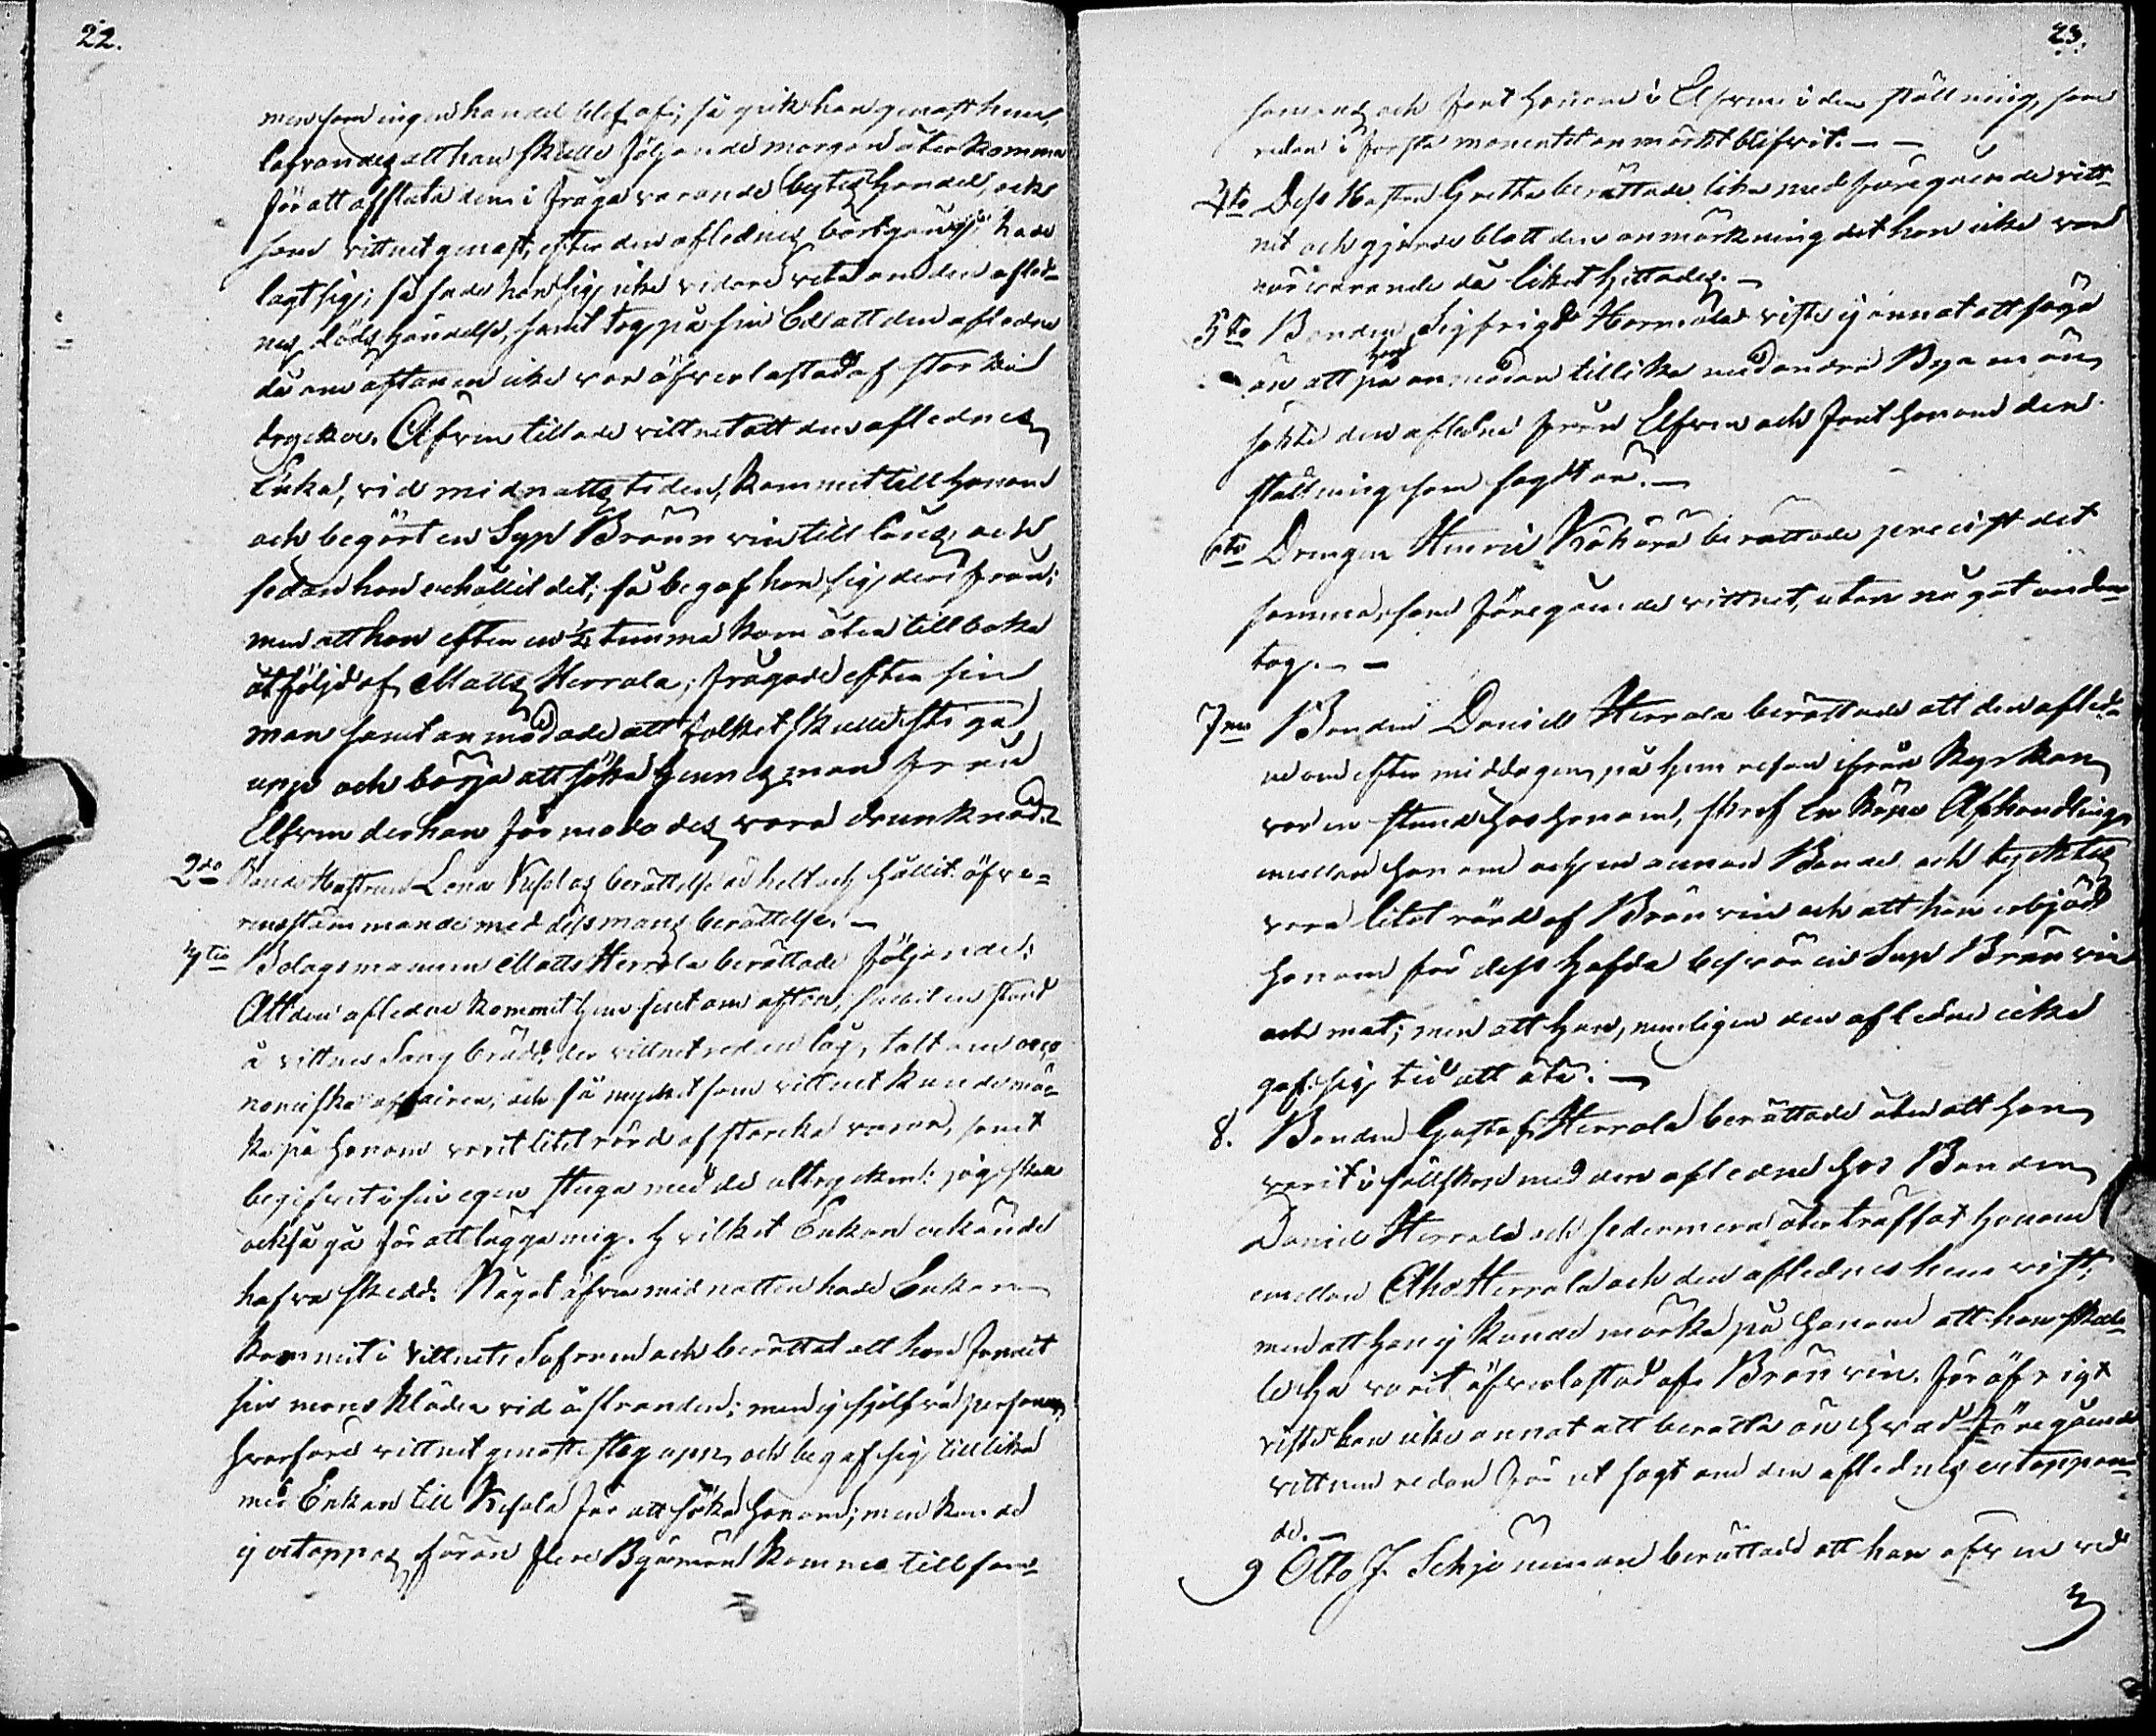 22.
men som ingen handel blef af; så gick han genast hem,
lofvandes att han skulle följande morgon återkomma
för att afsluta den i fråga varande bytes handel, och
som vittnet genast, efter den aflednes bortgång, hade
lagt sig; så sade han sig icke vidare veta om den afled-
nes döds händelse, samt tog på sin Ed att den afledne
då om aftonen icke var öfverlastad af starka
drycker. Äfven tillade vittnet att den aflednes
Enka, vid midnatts tiden, kommit till honom
och begärt en Sup Brännvin till låns, och
sedan hon erhållit det; så begaf hon sig derifrån;
men att hon efter en ¼ timma kom åter tillbaka
åtföljd af Matts Herrala; frågade efter sin
man samt anmodade att folket skulle stiga
upp och börja att söka hennes man från
Elfven der han förmodades vara drunknad.
2do Bonde Hustrun Lena berättelse är helt och hållit öfve-
rensstämmande med dess mans berättelse. —
3tio Bolagsmannen Matts Herrala berättade följande:
Att den afledne kommit hem sent om afton, suttit en stund
å vittnes Säng brädd, der vittnet redan låg, talt om oeco-
nomiska affairer, och så mycket som vittnet kunde mär-
ka på honom varit litet rörd af starcka varor, samt
begifvit i sin egen stuga med de uttrycken: jag skall
också gå för att lägga mig. Hvilket Enkan erkände
hafva skedt. Något öfver midnatten hade Enkan
kommit i vittnets Sofrum och berättat att hon funnit
sin mans kläder vid åstranden; men ej sjelfva personen
hvarföre vittnet genast steg upp, och begaf sig tillika
med Enkan till för att söka honom; men kunde
ej ertappas, förän flere Byamän kommo tillsam-
23.
mans och funt honom i Elfven i den ställning, som
redan i första momentet anmärkt blifvit. — —
4to Dess Hustru Gretha berättade lika med föregående vitt-
net och gjorde blott den anmärkning det hon icke var
närvarande då liket hittades. —
5to Bonden Sigfrid viste ej annat att säga
än att han på anmodan tillika med andra Bya män
sökte den afledne från Elfven och funt honom den
ställning som sagdt är. —
6to Drengen Henric berättade precist det
samma, som föregående vittnet, utan något undan-
tag. — —
7mo Bonden Daniel Herrala berättade att den afled-
ne om efter middagen, på hem resan ifrån Kyrkan,
var en stund hos honom, skref en köpe Afhandling
emellan honom och en annan Bonde och tycktes
vara litet rörd af Bränvin och att han erbjöd
honom för dess hafda besvär en Sup Bränvin
och mat; men att han, nemligen den afledne icke
gaf sig tid att äta. —
8. Bonden Gustaf Herrala berättade åter att han
varit i sällskap med den afledne hos Bonden
Daniel Herrala och sedermera återträffat honom
emellan Aho Herrala och den aflednes hemvist;
men att han ej kunde märka på honom att han skul-
le ha varit öfverlastad af Bränvin. För öfrigt
viste han icke annat att berätta än hvad föregående
vittnen redan förut sagt om den aflednes ertappan-
de. —
9 Otto J. berättade att han äfven vid